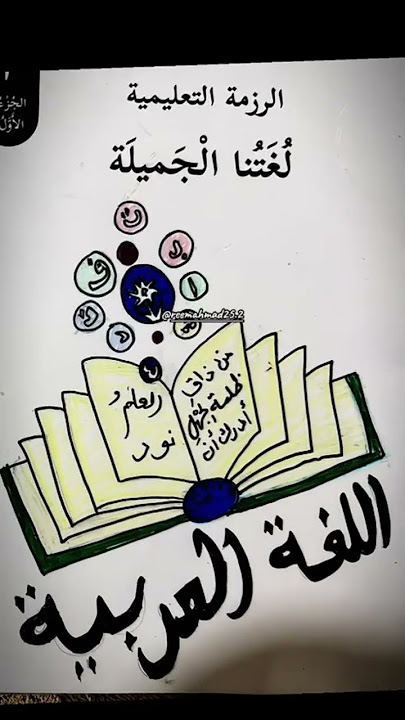 الجزء
الأول
الرزمة التعليمية
لُغَتُنا الْجَميلَة
@reemahmad25.2
من ذاق
ظلمة الجهل
أدرك أن
العلم
نور
اللغة العربية